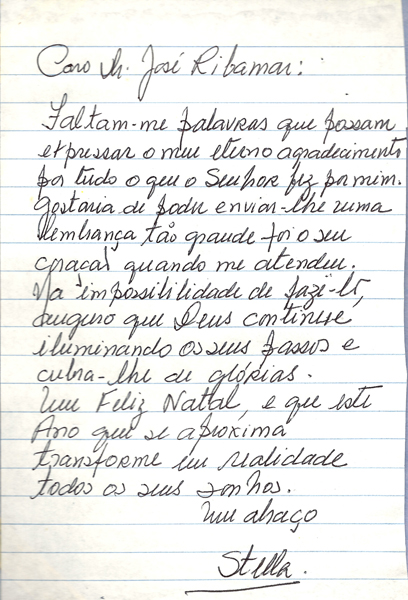 Caro Sr. José Ribamar:
Faltam-me palavras que possam
expressar o meu eterno agradecimento
por tudo o que o Senhor fez por mim.
Gostaria de poder enviar-lhe uma
lembrança tão grande foi o seu
coração quando me atendeu.
Na impossibilidade de fazê-lo,
auguro que Deus continue
iluminando os seus passos e
cubra-lhe de glórias.
Um Feliz Natal, e que este
Ano que se aproxima
transforme em realidade
todos os seus sonhos.
Um abraço
Stella.